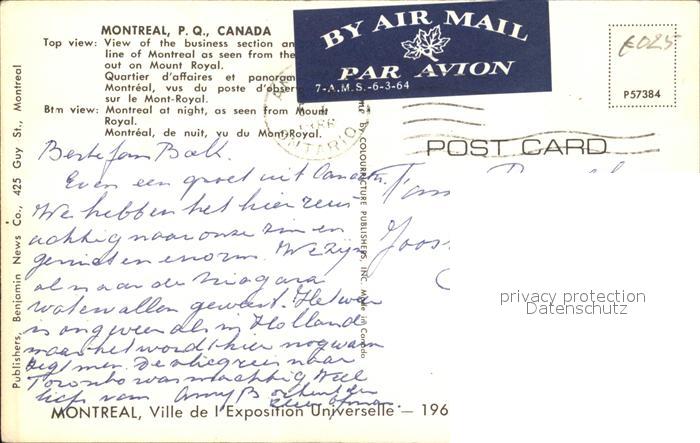 MONTREAL, P. Q., CANADA
Top view: View of the business section an
line of Montreal as seen from the
out on Mount Royal.
Quartier d'affaires et panoram
Montréal, vus du poste d'obser
sur le Mont-Royal.
Btm view: Montreal at night, as seen from Mount
Royal.
Montréal, de nuit, vu du Mont-Royal.
BY AIR MAIL
PAR AVION
7-A.M.S.-6-3-64
6025
P57384
ONTARIO
POST CARD
Publishers, Benjamin News Co., 425 Guy St., Montreal
by COLOURPICTURE PUBLISHERS, INC. Made in Canada
Beste fam Bolk.
Even een groet uit Canada.
We hebben het hier reus
achtig naar onze zin en
genieten enorm. We zijn
al naar de Niagara
watervallen geweest. Het weer
is ongeveer als in Holland
maar het wordt hier nog warm
zegt men. De vliegreis naar
Toronto was machtig Veel
liefs van
Fam
Joos
privacy protection
Datenschutz
MONTREAL, Ville de l'Exposition Universelle — 196